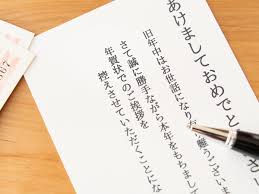 あけましておめでと
旧年中はお世話になり 難うござい
さて誠に勝手ながら本年をもちまし
年賀状でのご挨拶を
控えさせていただくことにな